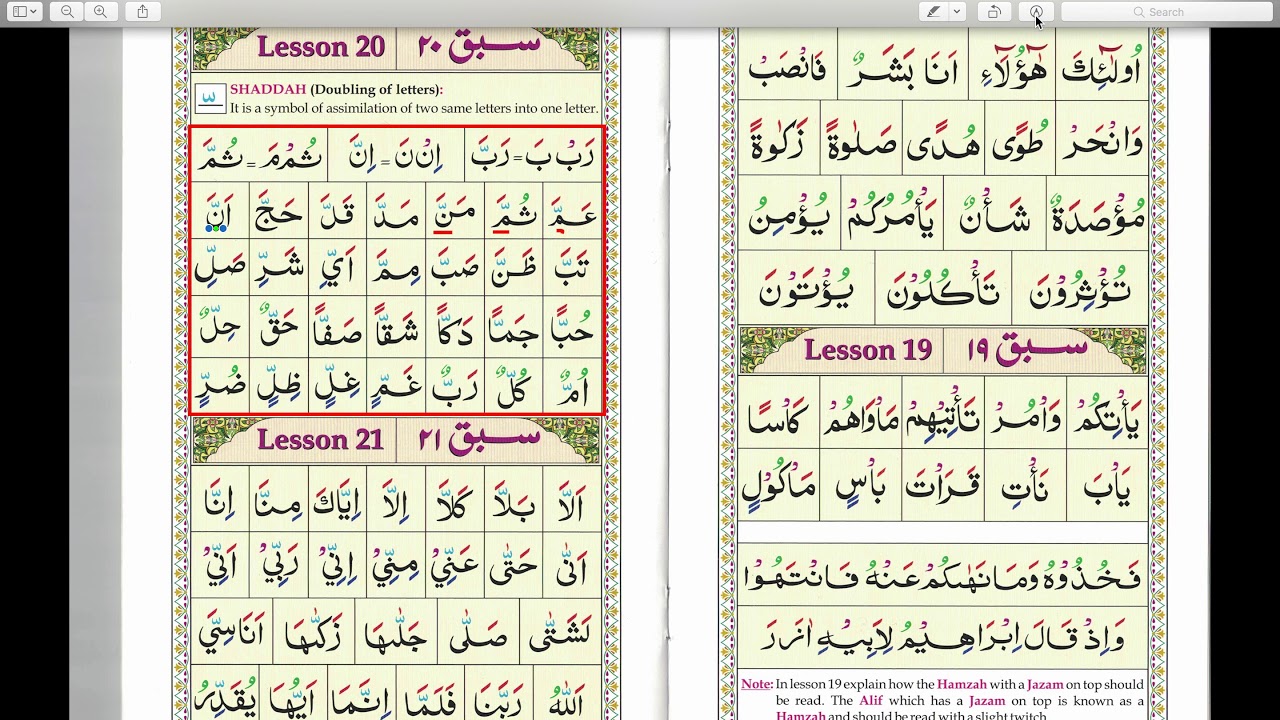 Search
اُولٰٓئِكَ هٰٓؤُلَآءِ اَنَا بَشَرٌ فَانْصَبْ
وَانْحَرْ طُوًى هُدًى صَلٰوةً زَكٰوةً
مُؤْصَدَةٌ شَأْنٌ يَأْمُرُكُمْ يُؤْمِنُ
تُؤْثِرُوْنَ تَأْكُلُوْنَ يُؤْتَوْنَ
Lesson 19 سبق ١٩
يَأْتِكُمْ وَأْمُرْ تَأْتِيْهِمْ مَأْوَاهُمْ كَأْسًا
يَأْبَ نَأْتِ قَرَأْتَ بَأْسٍ مَأْكُوْلٍ
فَخُذُوْهُ وَمَا نَهٰىكُمْ عَنْهُ فَانْتَهُوْا
وَاِذْ قَالَ اِبْرَاهِيْمُ لِاَبِيْهِ اٰزَرَ
Note: In lesson 19 explain how the Hamzah with a Jazam on top should
be read. The Alif which has a Jazam on top is known as a
Hamzah and should be read with a slight twitch
Lesson 20 سبق ٢٠
SHADDAH (Doubling of letters):
It is a symbol of assimilation of two same letters into one letter.
رَبْ بَ = رَبَّ اِنْ نَ = اِنَّ ثُمْ مَ = ثُمَّ
عَمَّ ثُمَّ مَنَّ مَدَّ قَلَّ حَجَّ اَنَّ
تَبَّ ظَنَّ صَبَّ مِمَّ اَيِّ شَرِّ صَلِّ
حُبًّا جَمًّا دَكًّا شَقًّا صَفًّا حَقٌّ حِلٌّ
اُمٌّ كُلٌّ رَبٌّ غَمٍّ غِلٍّ ظِلٍّ ضُرٍّ
Lesson 21 سبق ٢١
اَلَّا بَلَّا كَلَّا اِلَّا اِيَّاكَ مِنَّا اِنَّا
اَنّٰى حَتّٰى عَنِّيْ مِنِّيْ اِنِّيْ رَبِّيْ اَنِّيْ
لَشَتّٰى صَلّٰى جَلّٰىهَا زَكّٰىهَا اَنَاسِيَّ
اَللّٰهُ رَبَّنَا فَلَمَّا اِنَّمَا اَيُّهَا يُقَدِّرُ